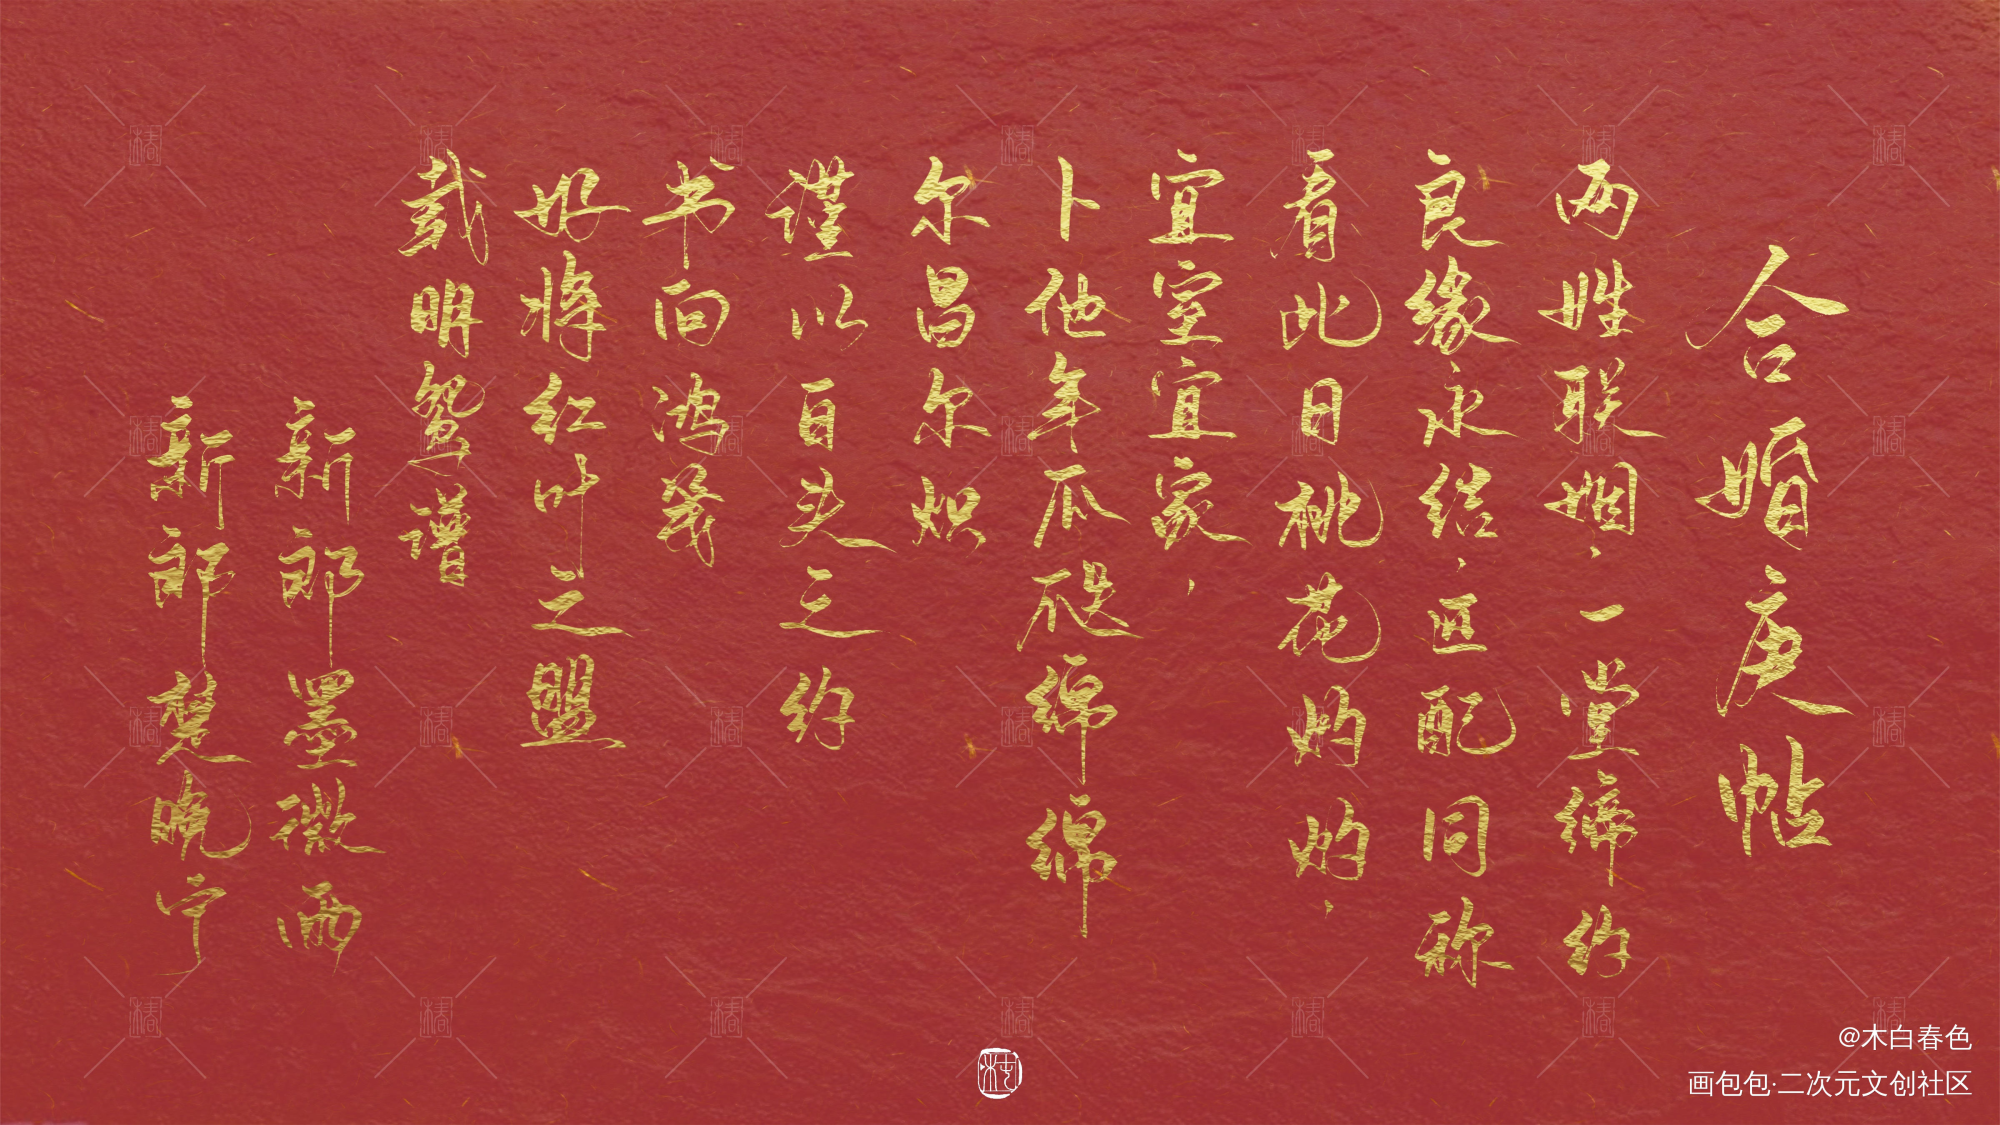 合婚庚帖
两姓联姻，一堂缔约
良缘永结，匹配同称
看此日桃花灼灼，
宜室宜家，
卜他年瓜瓞绵绵
尔昌尔炽
谨以白头之约
书向鸿笺
好将红叶之盟
载明鸳谱
新郎墨微雨
新郎楚晚宁
@木白春色
画包包·二次元文创社区